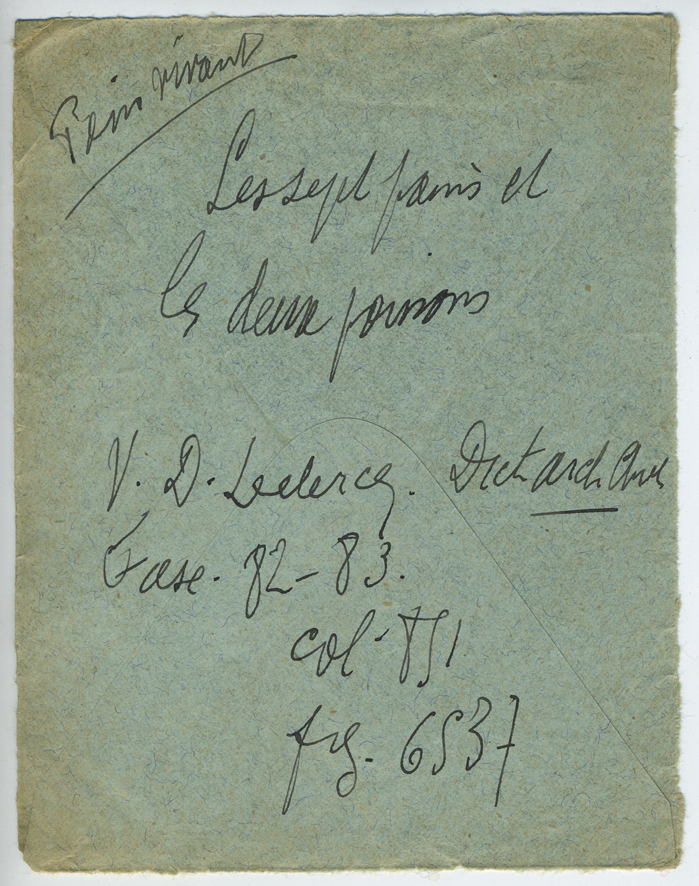 Pain vivant
Les sept pains et
les deux poissons
V. D. Leclercq. Dict. Arch. Chret.
Fasc. 82-83.
col. 851
fig. 6537